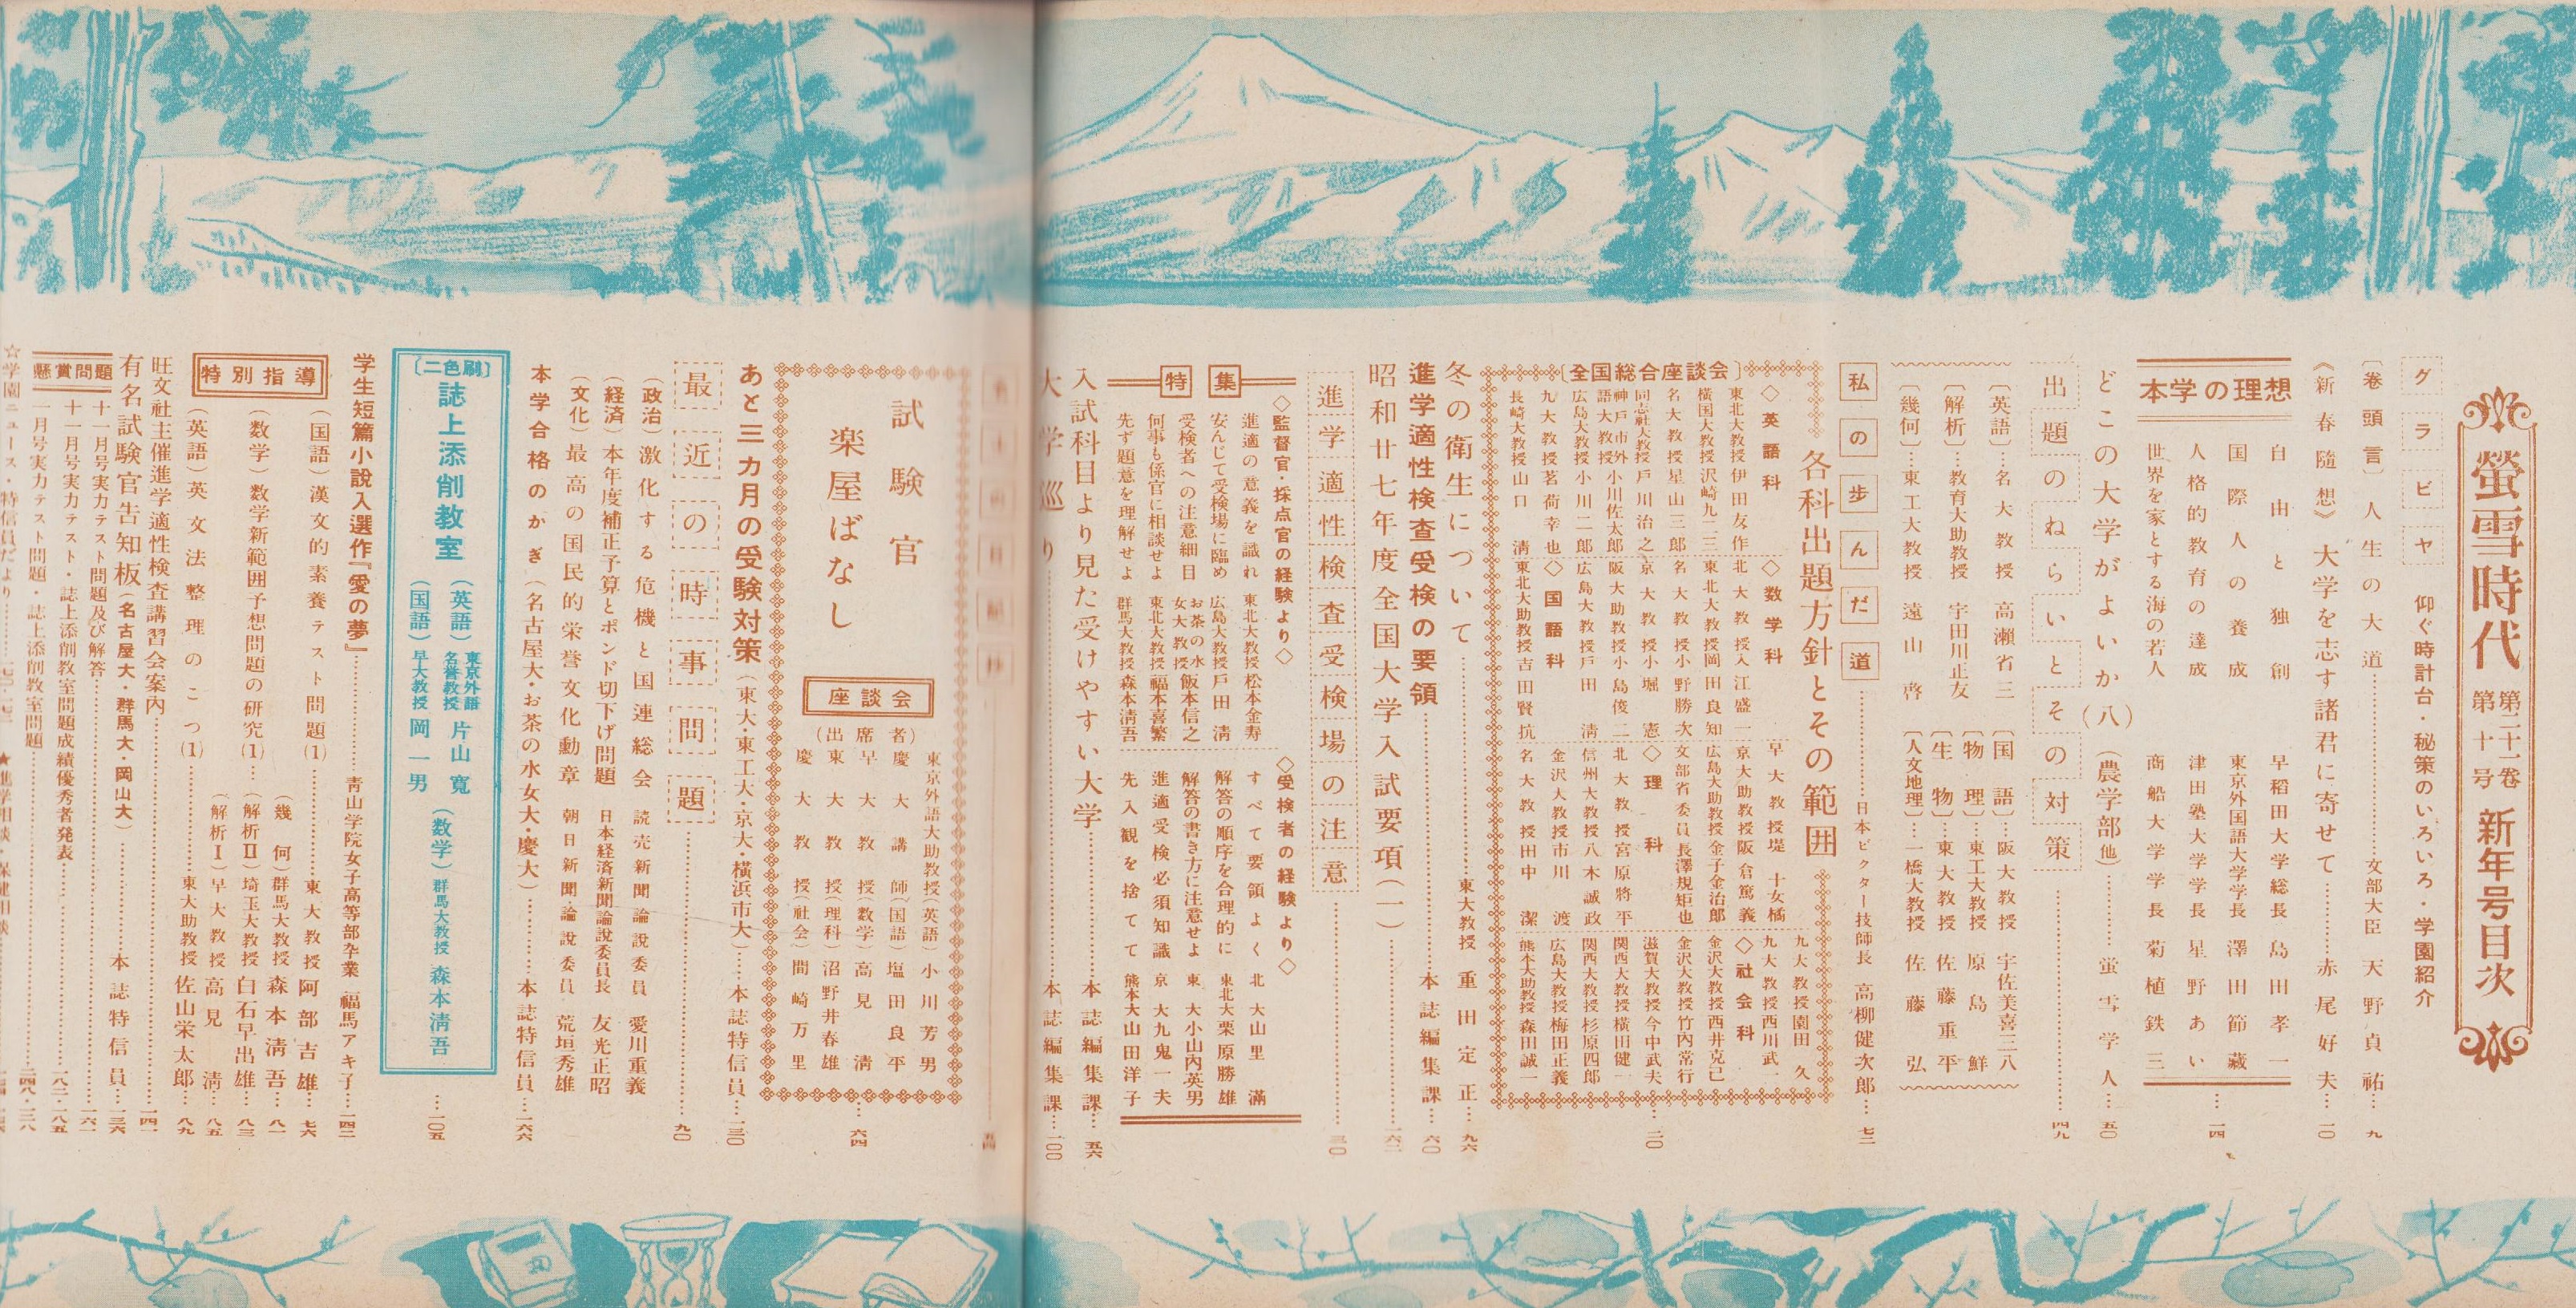 螢雪時代 第二十一卷 第十号 新年号目次
グラビヤ 仰ぐ時計台・秘策のいろいろ・学園紹介
〔巻頭言〕人生の大道……文部大臣 天野貞祐…九
《新春隨想》大学を志す諸君に寄せて……赤尾好夫…一〇
本学の理想
自由と独創 早稲田大学総長 島田孝一
国際人の養成 東京外国語大学学長 澤田節藏
人格的教育の達成 津田塾大学学長 星野あい
世界を家とする海の若人 商船大学学長 菊植鉄三
…一四
どこの大学がよいか(八)(農学部他)……蛍雪学人…五〇
出題のねらいとその対策……四九
〔英語〕…名大教授 高瀬省三
〔解析〕…教育大助教授 宇田川正友
〔幾何〕…東工大教授 遠山啓
〔国語〕…阪大教授 宇佐美喜三八
〔物理〕…東工大教授 原島鮮
〔生物〕…東大教授 佐藤重平
〔人文地理〕…一橋大教授 佐藤弘
私の歩んだ道……日本ビクター技師長 高柳健次郎…七二
〔全国総合座談会〕
各科出題方針とその範囲
◇英語科
東北大教授 伊田友作
橫国大教授 沢崎九二三
名大教授 星山三郎
同志社大教授 戸川治之
神戸市外語大教授 小川佐太郎
広島大教授 小川二郎
九大教授 茗荷幸也
長崎大教授 山口清
◇数学科
北大教授 入江盛一
東北大教授 岡田良知
名大教授 小野勝次
京大教授 小堀憲
阪大助教授 小島俊二
広島大教授 戸田清
◇国語科
東北大助教授 吉田賢抗
早大教授 堤十女橘
京大助教授 阪倉篤義
広島大助教授 金子金治郎
文部省委員長 澤規矩也
◇理科
北大教授 宮原將平
信州大教授 八木誠政
金沢大教授 市川渡
名大教授 田中潔
九大教授 園田久
九大教授 西川武一
◇社会科
金沢大教授 西井克己
金沢大教授 竹内常行
滋賀大教授 今中武夫
関西大教授 橫田健一
関西大教授 杉原四郎
広島大教授 梅田正義
熊本大助教授 森田誠一
…二〇
冬の衛生について……東大教授 重田定正…九六
進学適性検査受検の要領……本誌編集課…六〇
昭和廿七年度全国大学入試要項(一)……一六二
進学適性検査受検場の注意……三〇
特集
◇監督官・採点官の経験より◇
進適の意義を識れ 東北大教授 松本金寿
安んじて受検場に臨め 広島大教授 戸田清
受検者への注意細目 お茶の水女大教授 飯本信之
何事も係官に相談せよ 東北大教授 福本喜繁
先ず題意を理解せよ 群馬大教授 森本清吾
◇受検者の経験より◇
すべて要領よく 北大 山里滿
解答の順序を合理的に 東北大 栗原勝雄
解答の書き方に注意せよ 東大 小山內英男
進適受検必須知識 京大 九鬼一夫
先入観を捨てて 熊本大 山田洋子
入試科目より見た受けやすい大学……本誌編集課…五六
大学巡り……本誌編集課…一〇〇
試験官楽屋ばなし
座談会
(出席者)
東京外語大助教授(英語)小川芳男
慶大講師(国語)塩田良平
早大教授(数学)高見清
東大教授(理科)沼野井春雄
慶大教授(社会)間崎万里
…六四
あと三カ月の受験対策(東大・東工大・京大・橫浜市大)……本誌特信員…一三〇
最近の時事問題……九〇
(政治)激化する危機と国連総会 読売新聞論説委員 愛川重義
(経済)本年度補正予算とポンド切下げ問題 日本経済新聞論説委員長 友光正昭
(文化)最高の国民的栄誉文化勳章 朝日新聞論説委員 荒垣秀雄
本学合格のかぎ(名古屋大・お茶の水女大・慶大)……本誌特信員…一六六
〔二色刷〕
誌上添削教室
(英語)東京外語名誉教授 片山寬
(国語)早大教授 岡一男
(数学)群馬大教授 森本清吾
…一〇五
学生短篇小説入選作『愛の夢』……青山学院女子高等部卒業 福馬アキ子…一四二
特別指導
(国語)漢文的素養テスト問題(1)……東大教授 阿部吉雄…七六
(数学)数学新範囲予想問題の研究(1)…
(幾何)群馬大教授 森本清吾…八一
(解析Ⅱ)埼玉大教授 白石早出雄…八三
(解析Ⅰ)早大教授 高見清…八五
(英語)英文法整理のこつ(1)……東大助教授 佐山栄太郎…八九
旺文社主催進学適性検査講習会案内……一四一
有名試験官告知板(名古屋大・群馬大・岡山大)……本誌特信員…一三六
懸賞問題
十一月号実力テスト問題及び解答……一六一
十一月号実力テスト・誌上添削教室問題成績優秀者発表……一八二・一八五
一月号実力テスト問題・誌上添削教室問題
☆学園ニュース・特信員だより